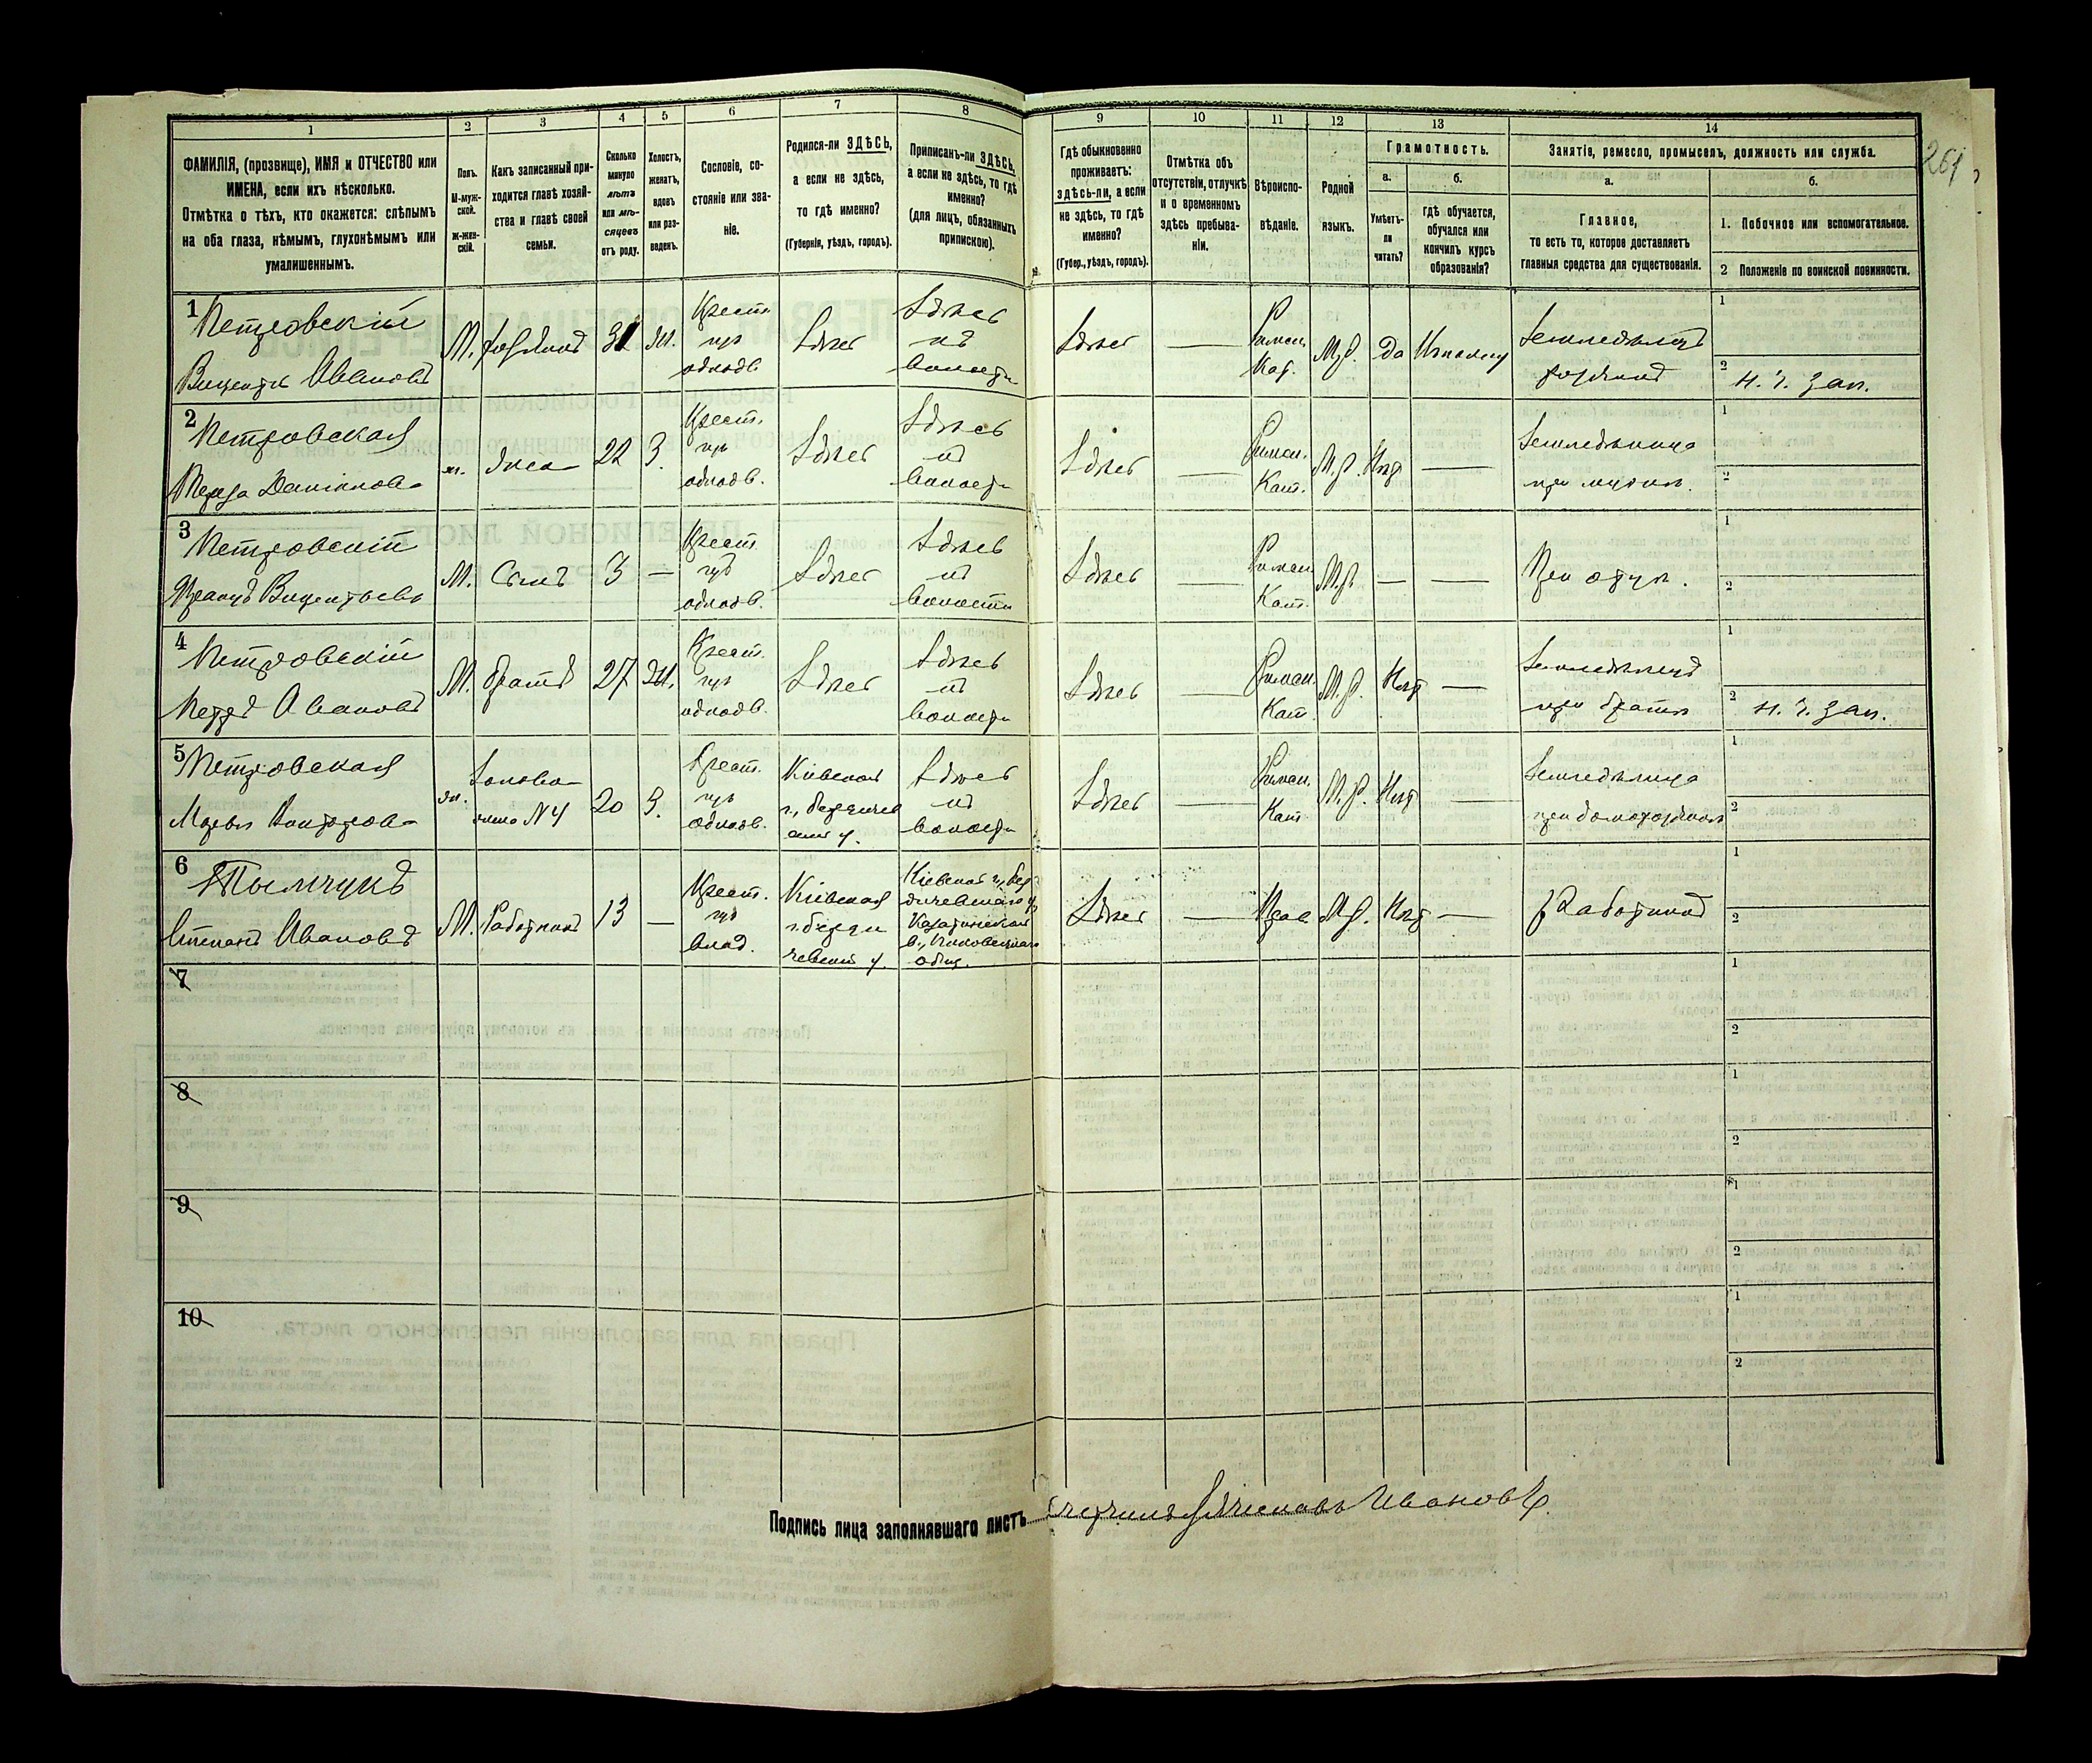 261
1
2
3
4
5
6
7
8
9
10
11
12
13
14
ФАМИЛІЯ, (прозвище), ИМЯ и ОТЧЕСТВО или
ИМЕНА, если ихъ нѣсколько.
Отмѣтка о тѣхъ, кто окажется: слѣпымъ
на оба глаза, нѣмымъ, глухонѣмымъ или
умалишеннымъ.
Полъ.
М-муж-
ской.
Ж-жен-
скій.
Какъ записанный при-
ходится главѣ хозяй-
ства и главѣ своей
семьи.
Сколько
минуло
лѣтъ
или мѣ-
сяцевъ
отъ роду.
Холостъ,
женатъ,
вдовъ
или раз-
веденъ.
Сословіе, со-
стояніе или зва-
ніе.
Родился-ли ЗДѢСЬ,
а если не здѣсь,
то гдѣ именно?
(Губернія, уѣздъ, городъ).
Приписанъ-ли ЗДѢСЬ,
а если не здѣсь, то гдѣ
именно?
(для лицъ, обязанныхъ
припискою).
Гдѣ обыкновенно
проживаетъ:
здѣсь-ли, а если
не здѣсь, то гдѣ
именно?
(Губер., уѣздъ, городъ).
Отмѣтка объ
отсутствіи, отлучкѣ
и о временномъ
здѣсь пребыва-
ніи.
Вѣроиспо-
вѣданіе.
Родной
языкъ.
Грамотность.
а.
Умѣетъ-
ли
читать?
б.
гдѣ обучается,
обучался или
кончилъ курсъ
образованія?
Занятіе, ремесло, промыселъ, должность или служба.
а.
Главное,
то есть то, которое доставляетъ
главныя средства для существованія.
б.
1. Побочное или вспомогательное.
2 Положеніе по воинской повинности.
1
Петровскій
Викентій Ивановъ
М.
хозяинъ
31
Ж.
Крест.
изъ
однодв.
Здѣсь
Здѣсь
въ
волости
Здѣсь
—
Римск.
Кат.
М.Р.
Да
Земледѣлецъ
хозяинъ
1
2
н. ч. зап.
2
Петровская
ж.
жена
22
З.
Крест.
изъ
однодв.
Здѣсь
Здѣсь
въ
волости
Здѣсь
—
Римск.
Кат.
М.Р.
Нѣтъ
—
Земледѣлица
при мужѣ.
1
2
3
Петровскій
Францъ Викентьевъ
М.
Сынъ
3
—
Крест.
изъ
однодв.
Здѣсь
Здѣсь
въ
волости
Здѣсь
—
Римск.
Кат.
М.Р.
—
—
При отцѣ.
1
2
4
Петровскій
Петръ Ивановъ
М.
братъ
27
Ж.
Крест.
изъ
однодв.
Здѣсь
Здѣсь
въ
волости
Здѣсь
—
Римск.
Кат.
М.Р.
Нѣтъ
—
Земледѣлецъ
при братѣ
1
2
н. ч. зап.
5
Петровская
ж.
20
З.
Крест.
изъ
однодв.
Кіевская
г., бердичев
скій у.
Здѣсь
въ
волости
Здѣсь
—
Римск.
Кат
М.Р.
Нѣтъ
—
Земледѣлица
1
2
6
Тымчукъ
Степанъ Ивановъ
М.
Работникъ
13
—
Крест.
изъ
влад.
Кіевская
г. берди
чевскій у.
Кіевская г., бер
дичевскаго у.
общ.
Здѣсь
—
Прав
М.Р.
Нѣтъ
—
Работникъ
1
2
7
1
2
8
1
2
9
1
2
10
1
2
Подпись лица заполнявшаго листъ